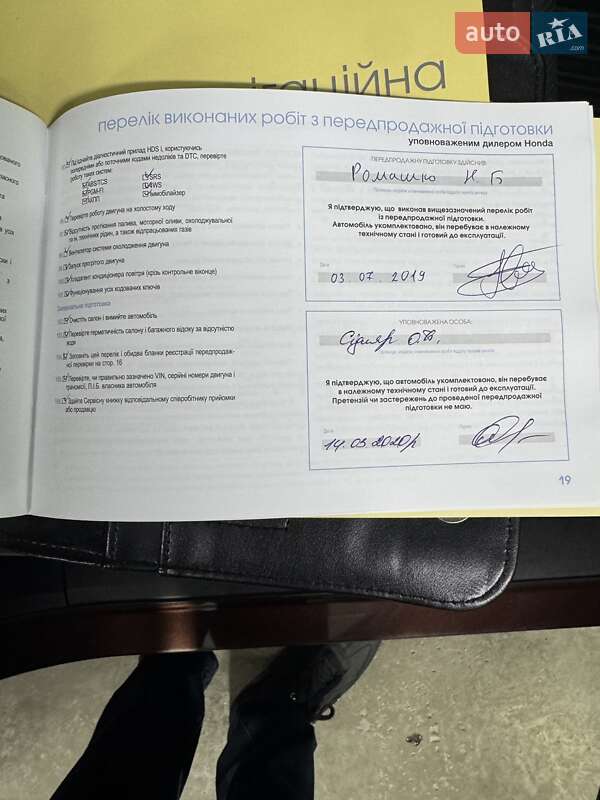 auto RIA .com
перелік виконаних робіт з передпродажної підготовки
уповноваженим дилером Honda
Під'єднайте діагностичний прилад HDS і, користуючись
попередніми або поточними кодами недоліків та DTC, перевірте
роботу таких систем:
ABS/TCS SRS
PGM-FI 4WS
АПП Іммобілайзер
Перевірте роботу двигуна на холостому ходу
Відсутність протікання палива, моторної оливи, охолоджувальної
та ін. технічних рідин, а також відпрацьованих газів
Вентилятор системи охолодження двигуна
Запуск прогрітого двигуна
Холодагент кондиціонера повітря (крізь контрольне віконце)
Функціонування усіх кодованих ключів
підготовка
Очистіть салон і вимийте автомобіль
Перевірте герметичність салону і багажного відсіку за відсутністю
води
Заповніть цей перелік і обидва бланки реєстрації передпродаж-
ної перевірки на стор. 16
Перевірте, чи правильно зазначено VIN, серійні номери двигуна і
трансмісії, П.І.Б. власника автомобіля
Здайте Сервісну книжку відповідальному співробітнику прийомки
або продавцю
ПЕРЕДПРОДАЖНУ ПІДГОТОВКУ ЗДІЙСНИВ:
Ромашко Н. Б
Я підтверджую, що виконав вищезазначений перелік робіт
із передпродажної підготовки.
Автомобіль укомплектовано, він перебуває в належному
технічному стані і готовий до експлуатації.
Дата Підпис
03.07.2019
УПОВНОВАЖЕНА ОСОБА:
Я підтверджую, що автомобіль укомплектовано, він перебуває
в належному технічному стані і готовий до експлуатації.
Претензій чи застережень до проведеної передпродажної
підготовки не маю.
Дата Підпис
14.03.2020р
19